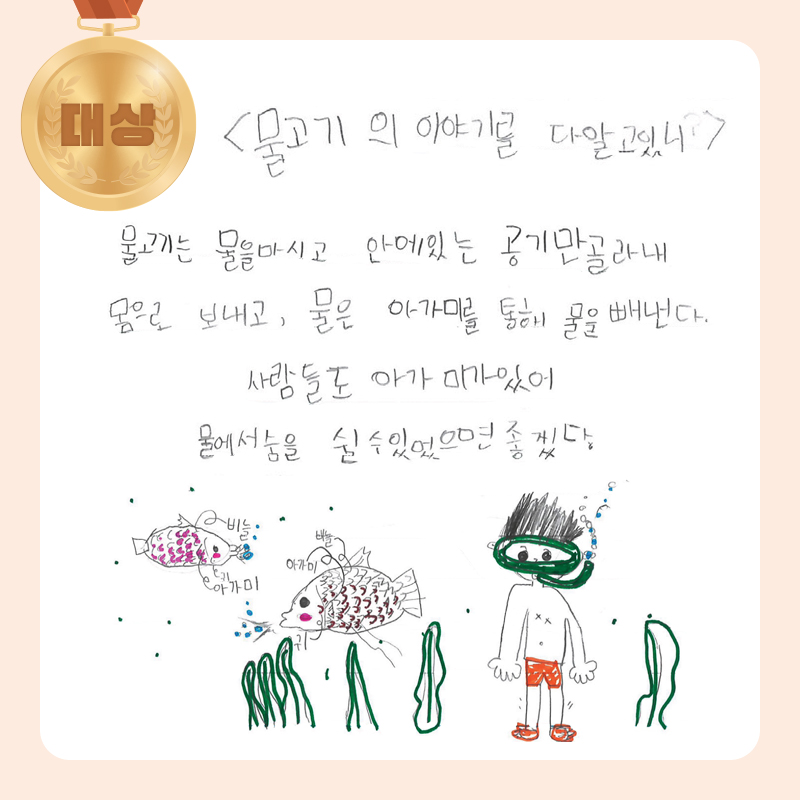 대상
<물고기 의 이야기를 다알고있니?>
물고기는 물을마시고 안에있는 공기만골라내
몸으로 보내고, 물은 아가미를 통해 물을빼낸다.
사람들도 아가미가있어
물에서숨을 쉴수있었으면좋겠다
비늘
아가미
비늘
아가미
귀